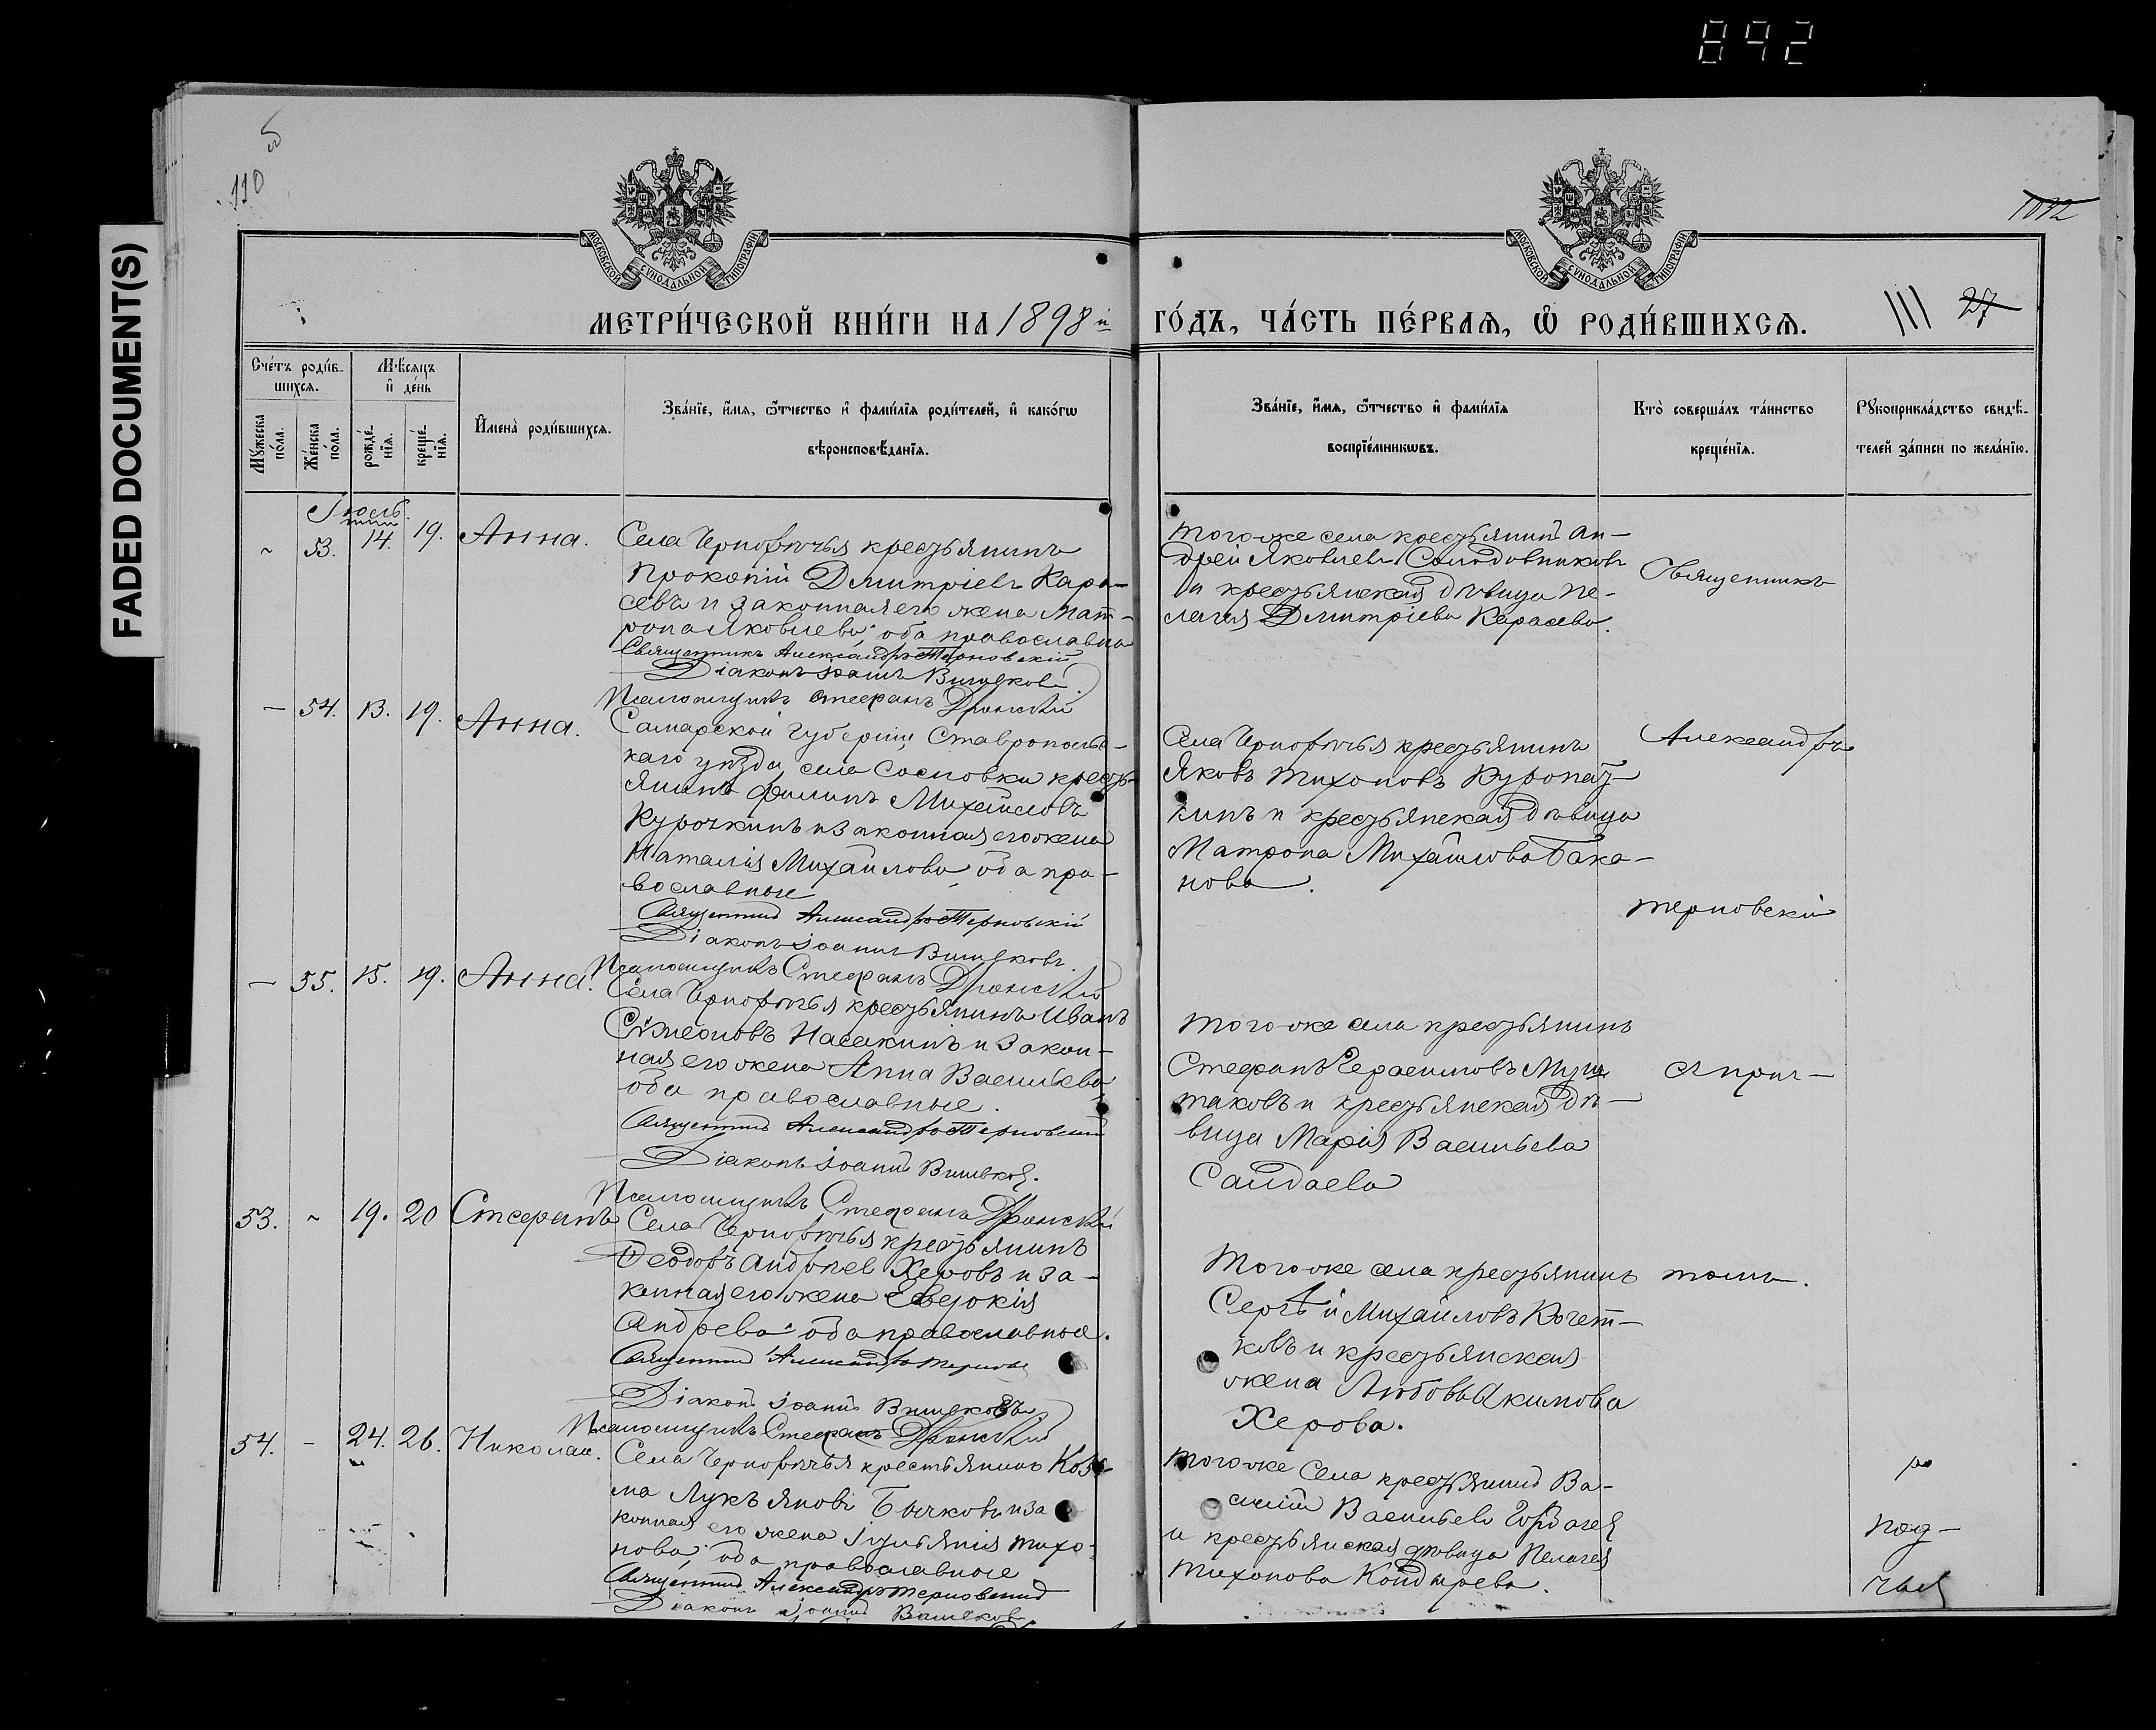 892
FADED DOCUMENT(S)
110
1012
МОСКОВСКОЙ СУНОДАЛЬНОЙ ТИПОГРАФІИ
МОСКОВСКОЙ СУНОДАЛЬНОЙ ТИПОГРАФІИ
МЕТРИ́ЧЕСКОЙ КНИ́ГИ НА 1898 й
ГО́ДЪ, ЧА́СТЬ ПЕ́РВАѦ, Ѽ РОДИ́ВШИХСѦ. 111 27
Сче́тъ роди́в-
шихсѧ.
Мѣ́сѧцъ
и҆ де́нь
И҆мена̀ роди́вшихсѧ.
Зва́нїе, и҆́мѧ, ѻ҆́тчество и҆ фами́лїѧ роди́телей, и҆ како́гѡ
вѣроисповѣ́данїѧ.
Зва́нїе, и҆́мѧ, ѻ҆́тчество и҆ фами́лїѧ
воспрїе́мникѡвъ.
Кто̀ соверша́лъ та́инство
креще́нїѧ.
Рꙋкоприкла́дство свидѣ́-
телей за́писи по жела́нїю.
Мꙋ́жеска
по́ла.
Же́нска
по́ла.
рожде́-
нїѧ.
креще́-
нїѧ.
Іюль.
~ 53. 14. 19. Анна.
Села Чернорѣчья крестьянинъ
Прокопій Дмитріевъ Кара-
севъ и законная его жена Мат-
рона Яковлева, оба православны
Священникъ Александръ Терновскій
Діаконъ Іоаннъ
Псаломщикъ Стефанъ
Того-же села крестьянинъ Ан-
дрей Яковлевъ Солодовниковъ
и крестьянская дѣвица Пе-
лагия Дмитріева Карасева.
Священникъ
— 54. 13. 19. Анна.
Самарской губерніи Ставрополь-
каго уѣзда села Сосновки кресть-
янинъ Филипъ Михайловъ
Курочкинъ и законная его жена
Наталія Михайлова, оба пра-
вославные
Священникъ Александръ Терновскій
Діаконъ Іоаннъ
Псаломщикъ Стефанъ
Села Чернорѣчья крестьянинъ
Яковъ Тихоновъ Куропат-
кинъ и крестьянская дѣвица
Матрона Михайлова Бака-
нова.
Александръ
Терновскій
— 55. 15. 19. Анна.
Села Чернорѣчья крестьянинъ Иванъ
Сѵмеоновъ Насекинъ и закон-
ная его жена Анна Васильева
оба православные.
Священникъ Александръ Терновскій
Діаконъ Іоаннъ
Псаломщикъ Стефанъ
Того-же села крестьянинъ
Стефанъ Герасимовъ Муш-
таковъ и крестьянская дѣ-
вица Марія Васильева
Сандаева
съ прич-
53. ~ 19. 20 Стефанъ
Села Чернорѣчья крестьянинъ
Ѳеодоръ Андреевъ Херовъ и за-
конная его жена Евдокія
Андреева, оба православные.
Священникъ Александръ Терновс
Діаконъ Іоаннъ
Псаломщикъ Стефанъ
Того-же села крестьянинъ
Сергѣй Михайловъ Кочет-
ковъ и крестьянская
жена Любовь Акимова
Херова.
томъ.
54. - 24. 26. Николай.
Села Чернорѣчья крестьянинъ Козь-
ма Лукьяновъ Бычковъ и за
конная его жена Іуліанія Тихо-
нова, оба православные
Священникъ Александръ Терновскій
Діаконъ Іоаннъ
Того-же села крестьянинъ Ва-
силій Васильевъ
и крестьянская дѣвица Пелагея
Тихонова Кондырева.